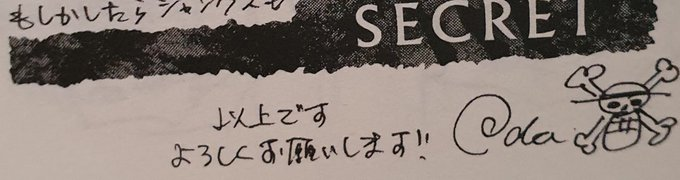 もしかしたらシャンクスも
SECRET
以上です
よろしくお願いします!!
Oda